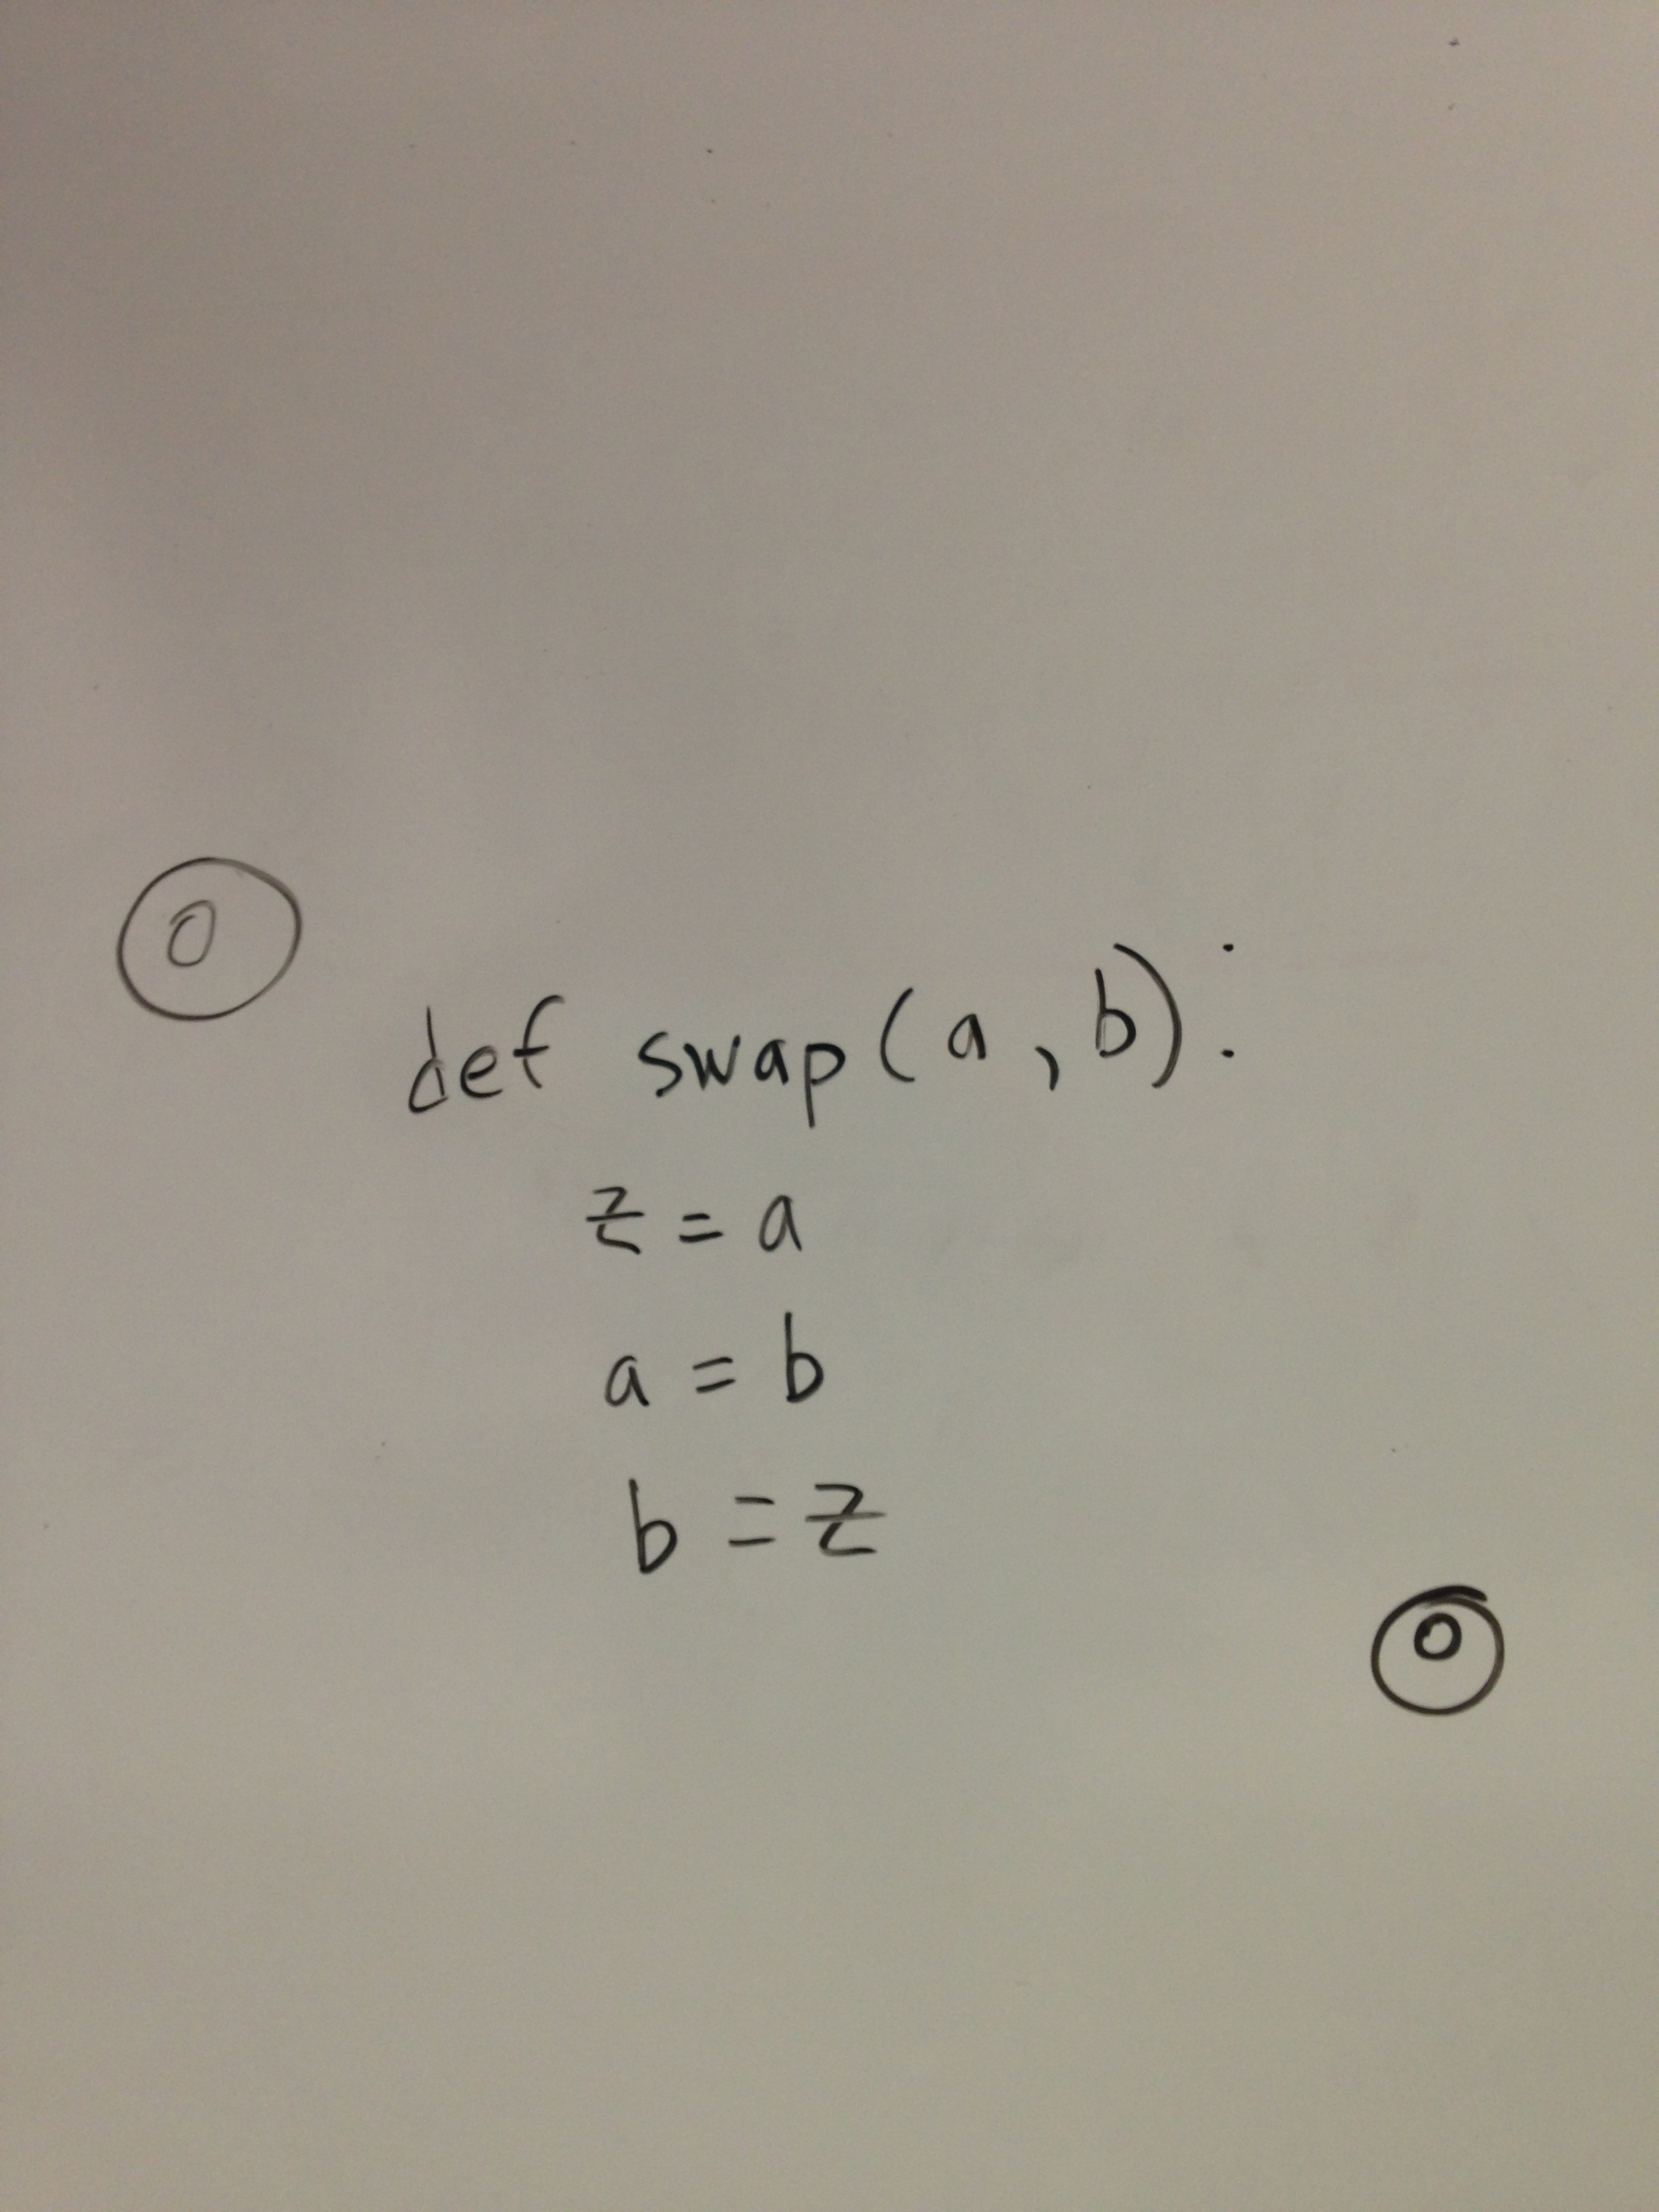 0
def swap(a, b):
z = a
a = b
b = z
0